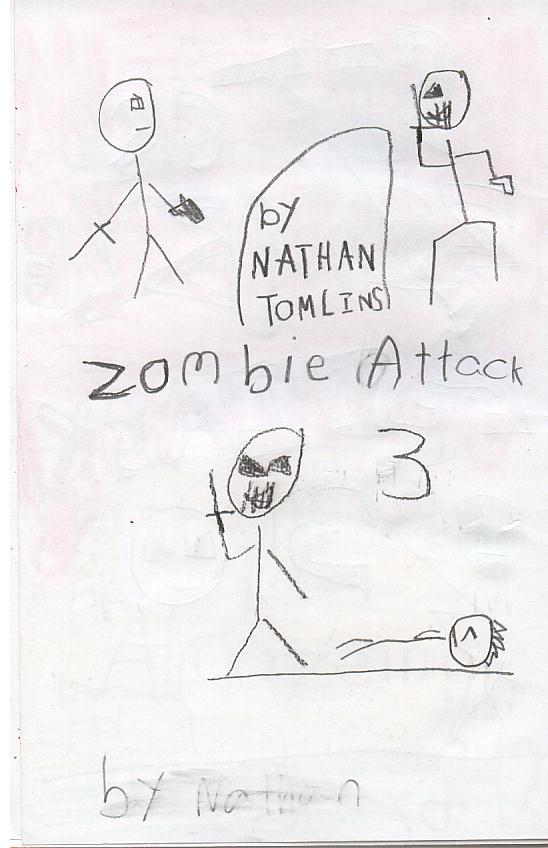 by
NATHAN
TOMLINS
Zombie Attack
3
by Nathan